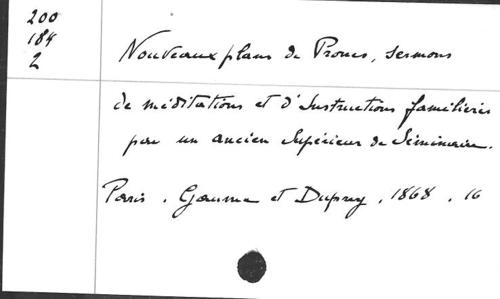 200
184
2
Nouveaux plans de Prones, sermons
de méditations et d'Instructions familieres
par un ancien Supérieur de Séminaire.
Paris. Gaume et Duprey, 1868, 16